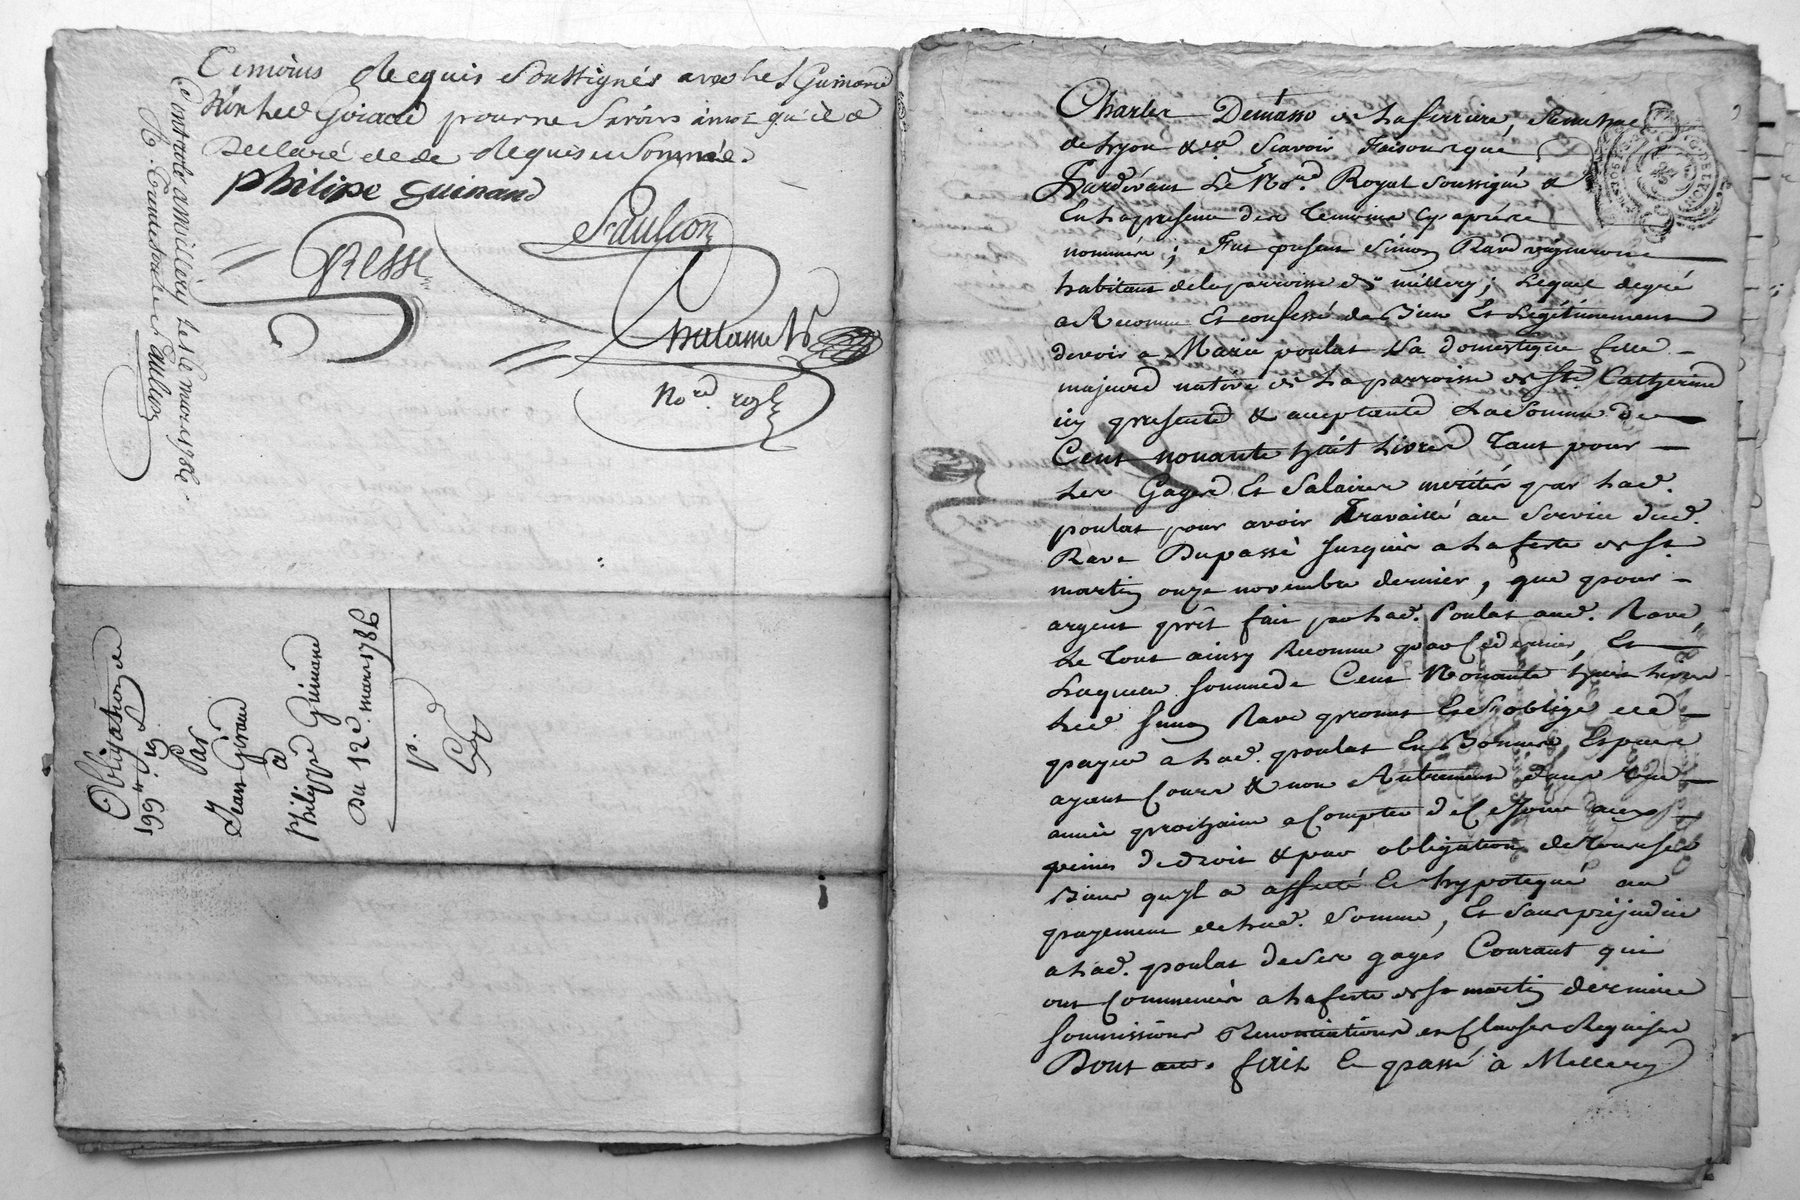 Temoins Requis Soussignés avec led. Guinand
Non led. Giraud pour ne Savoir ainsi qu'il a
Declaré de ce Requis et Sommé.
philipe guinand
Faulcon
Gresse
Chatanne
No.re royl
Controlé a millery le 16 mars 1786
R. Trente Sols Faulcon
Obligation de
199 ₶ 19 s.
Par
Jean Giraud
a
Philippe Guinand
Du 12e. mars 1786
p.
Charles Demasso de La ferriere, Senechal
de Lyon &ca Scavoir faisons que
Pardevant Le No.re Royal soussigné &
En La presence des Temoins Cy apres
nommés; Fut present Simon Rave vigneron
habitant de la parroisse de millery; Lequel de gré
a Reconnu Et confessé de Bien Et Légitimement
devoir a Marie poulat Sa domestique fille
majeure native de La parroisse de Ste. Catherine
icy presente & acceptante La Somme de
Cent nonante huit Livres Tant pour
Les Gages Et Salaires mérités par Lad.
poulat pour avoir Travaillé au Service dud.
Rave Du passé Jusques a La feste de St.
martin onze novembre dernier, que pour
argent prêt fait par Lad. Poulat aud. Rave,
Le Tout ainsy Reconnu par Ce dernier, Et
Laquelle Somme de Cent Nonante huit Livres
Led. Simon Rave promet Et S'oblige de
payer a Lad. poulat En Bonnes Especes
ayant Cours & non Autrement dans une
année prochaine a Compter de Ce Jour aux
peines de droit & par obligation de Tous Ses
Biens qu'il a affecté Et hypotequé au
payement de Lad. Somme, Et Sans préjudice
a Lad. poulat de Ses gages Courant qui
ont Commencés a La feste de St martin derniere
Soumissions Renonciations et Clauses Requises
Dont acte. fait Et passé à Millery